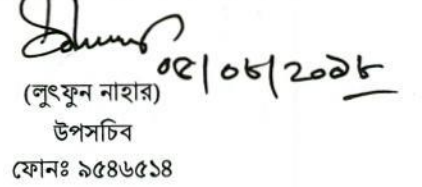 ০৫/০৮/২০১৮
(লুৎফুন নাহার)
উপসচিব
ফোনঃ ৯৫৪৬৫১৪